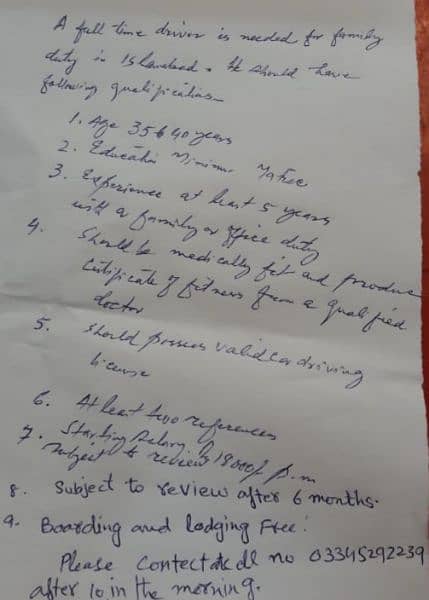 A full time driver is needed for family
duty in Islamabad. He should have
following qualifications
1. Age 35 to 40 years
2. Education Minimum Matric
3. Experience at least 5 years
with a family or office duty
4. Should be medically fit and produce
certificate of fitness from a qualified
doctor
5. Should possess valid car driving
license
6. At least two references
7. Starting Salary Rs 18000/ p.m
subject to review
8. Subject to review after 6 months.
9. Boarding and Lodging Free!
Please Contect at cell no 03345292239
after 10 in the morning.